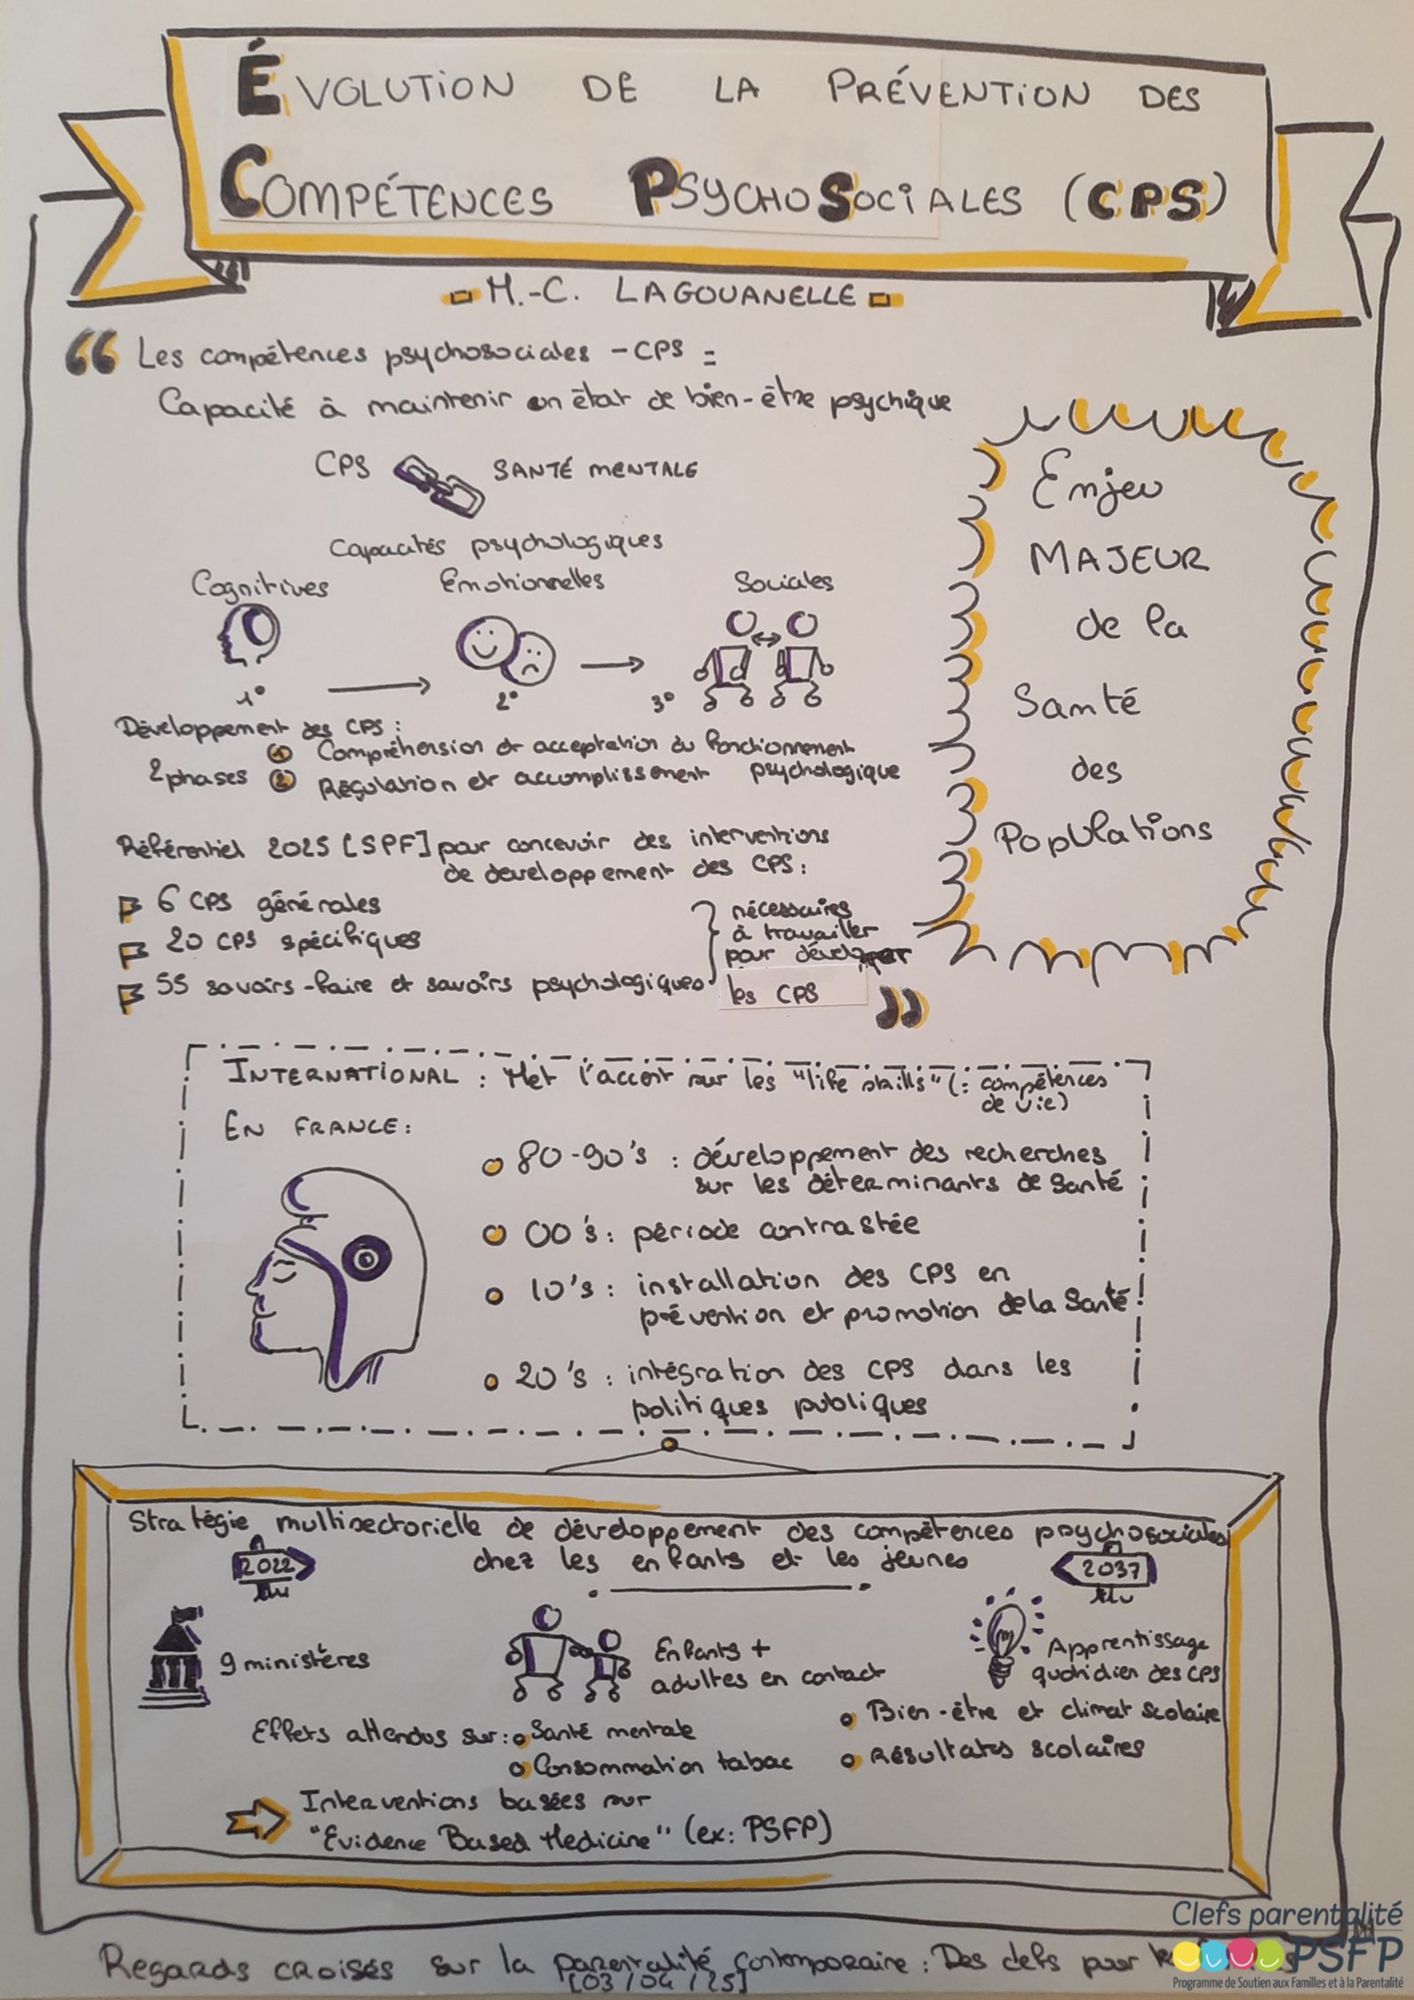 ÉVOLUTION DE LA PRÉVENTION DES
COMPÉTENCES PSYCHOSOCIALES (CPS)
M.-C. LAGOUANELLE
“ Les compétences psychosociales - CPS =
Capacité à maintenir un état de bien-être psychique
CPS SANTÉ MENTALE
Capacités psychologiques
Cognitives Emotionnelles Sociales
1° 2° 3°
Développement des CPS :
2 phases
1 Compréhension et acceptation du fonctionnement
2 Régulation et accomplissement psychologique
Enjeu
MAJEUR
de la
Santé
des
Populations
Référentiel 2025 [SPF] pour concevoir des interventions
de developpement des CPS :
6 CPS générales
20 CPS spécifiques
55 savoirs-faire et savoirs psychologiques
nécessaires
à travailler
pour développer
les CPS ”
INTERNATIONAL : Met l'accent sur les "life skills" (: compétences
de vie)
EN FRANCE :
80-90's : développement des recherches
sur les déterminants de Santé
00's : période contrastée
10's : installation des CPS en
prévention et promotion de la Santé
20's : intégration des CPS dans les
politiques publiques
Stratégie multisectorielle de développement des compétences psychosociales
chez les enfants et les jeunes
2022
2037
9 ministères
Enfants +
adultes en contact
Apprentissage
quotidien des CPS
Effets attendus sur : Santé mentale
Consommation tabac
Bien-être et climat scolaire
Résultats scolaires
Interventions basées sur
"Evidence Based Medicine" (ex: PSFP)
Regards croisés sur la parentalité contemporaine : Des clefs pour
[03/04/25]
Clefs parentalité
PSFP
Programme de Soutien aux Familles et à la Parentalité